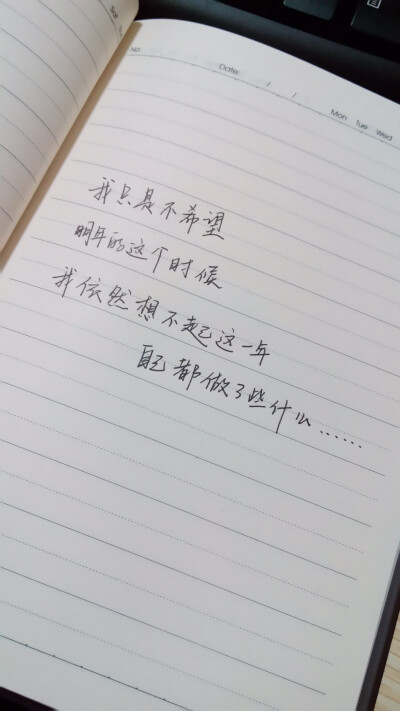 Sat
No:
Date: / /
Mon Tue Wed
我只是不希望
明年的这个时候
我依然想不起这一年
自己都做了些什么……